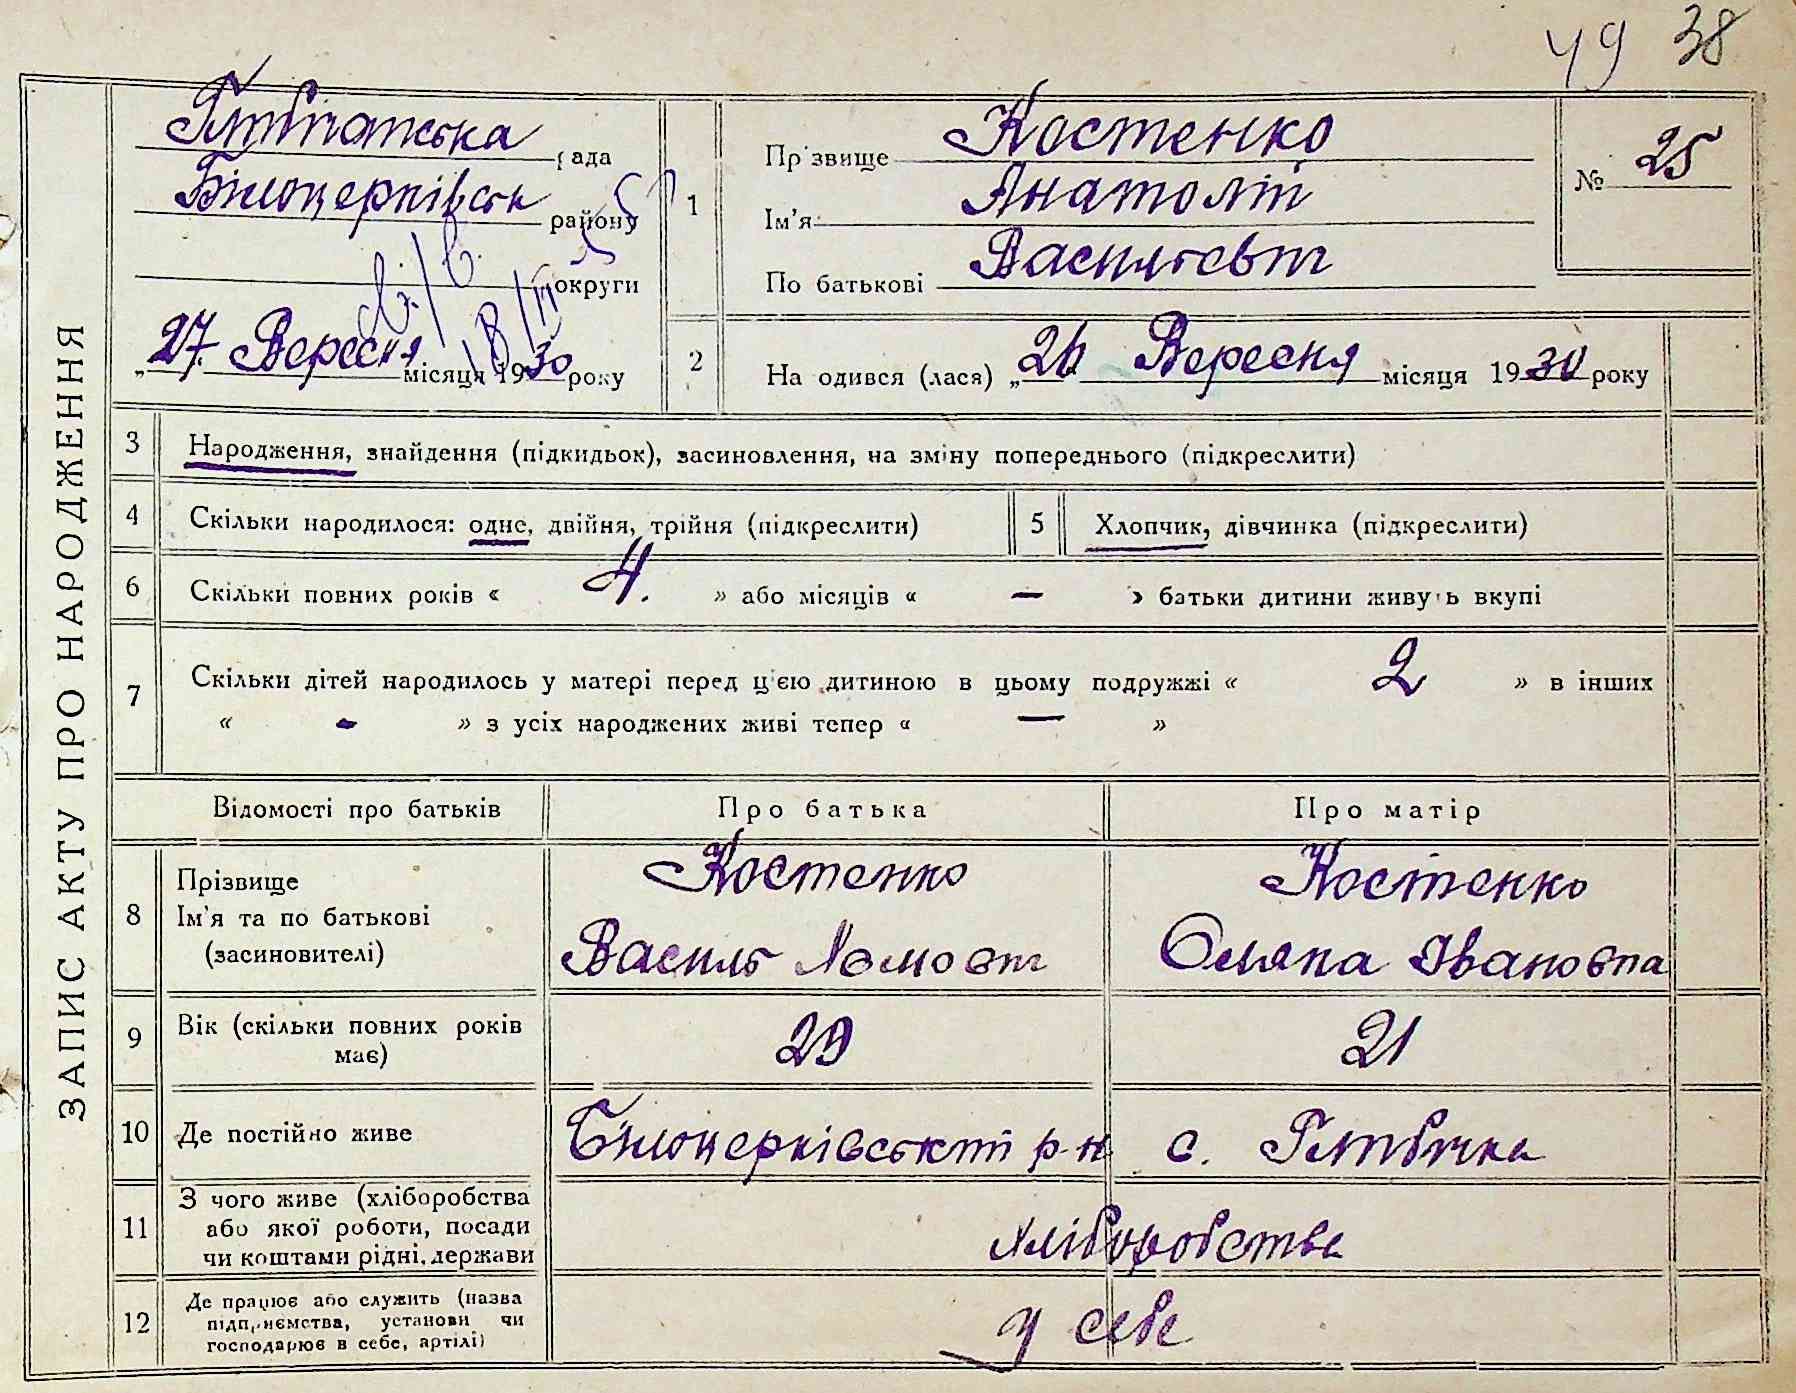 49 38
ЗАПИС АКТУ ПРО НАРОДЖЕННЯ
Глибочанська рада
Білоцерківськ району
округи
„27. Вересня місяця 1930 року
1
Прізвище Костенко
Ім'я Анатолій
По батькові Васильович
№ 25
2 Народився (лася) „26 Вересня місяця 1930 року
3 Народження, знайдення (підкидьок), засиновлення, на зміну попереднього (підкреслити)
4 Скільки народилося: одне, двійня, трійня (підкреслити) 5 Хлопчик, дівчинка (підкреслити)
6 Скільки повних років « 4. » або місяців « — » батьки дитини живуть вкупі
7 Скільки дітей народилось у матері перед цією дитиною в цьому подружжі « 2 » в інших
« - » з усіх народжених живі тепер « — »
Відомості про батьків Про батька Про матір
8 Прізвище
Ім'я та по батькові
(засиновителі)
Костенко
Василь
Костенко
Оляна Івановна
9 Вік (скільки повних років
має)
29 21
10 Де постійно живе Білоцерківський р-н с. Глибічка
11 З чого живе (хліборобства
або якої роботи, посади
чи коштами рідні, держави
хліборобства
12 Де працює або служить (назва
підприємства, установи чи
господарює в себе, артілі)
у себе